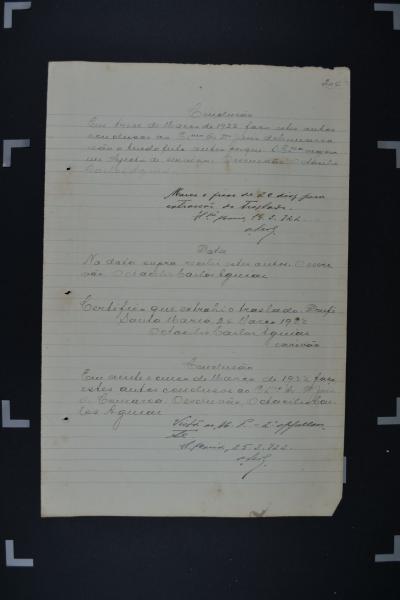 204
Conclusão
Em treze de Março de 1922 faço estes autos
conclusos ao Exmo Sr Dr Juiz da comarca
Escrivão Octacilio
Carlos Aguiar
Marco o prazo de 20 dias para
extracção do traslado.
Sta Maria, 14.3.922
Data
Na data supra recebi estes autos. O escri-
vão Octacilio Carlos Aguiar
Certifico que extrahi o traslado. Dou fé
Santa Maria, 24 Março 1922
Octacilio Carlos Aguiar
escrivão
Conclusão
Em vinte e cinco de Março de 1922 faço
estes autos conclusos ao Exmo Sr Dr Juiz
da Comarca. O escrivão, Octacilio Car-
los Aguiar
Sta Maria, 25.3.922